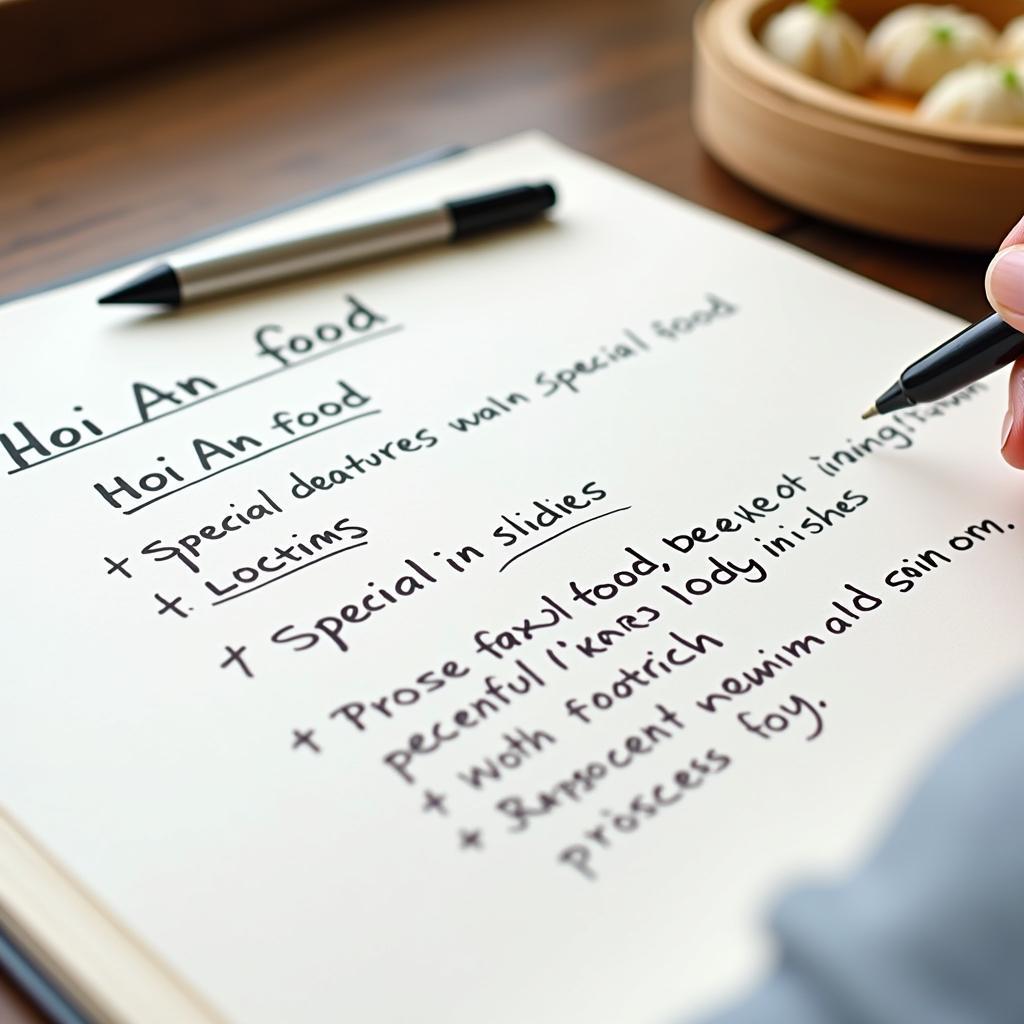 Hoi An food
Hoi An food
+ Special deatures waln special food
+. Loctims
+ Special in slidies
+ Prose food, beeveot
pecenful lody inishes
+ Woth footrich
+ newim ald sain om.
proscess foy.